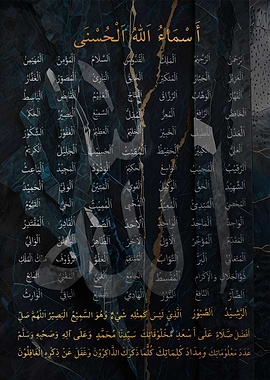 أَسْمَاءُ اللهُ الْحُسْنَى
الرَّحْمٰنُ الرَّحِيْمُ الْمَلِكُ الْقُدُّوْسُ السَّلَامُ الْمُؤْمِنُ الْمُهَيْمِنُ
الْعَزِيْزُ الْجَبَّارُ الْمُتَكَبِّرُ الْخَالِقُ الْبَارِئُ الْمُصَوِّرُ الْغَفَّارُ
الْقَهَّارُ الْوَهَّابُ الرَّزَّاقُ الْفَتَّاحُ الْعَلِيْمُ الْقَابِضُ الْبَاسِطُ
الْخَافِضُ الرَّافِعُ الْمُعِزُّ الْمُذِلُّ السَّمِيْعُ الْبَصِيْرُ الْحَكَمُ
الْعَدْلُ اللَّطِيْفُ الْخَبِيْرُ الْحَلِيْمُ الْعَظِيْمُ الْغَفُوْرُ الشَّكُوْرُ
الْعَلِيُّ الْكَبِيْرُ الْحَفِيْظُ الْمُقِيْتُ الْحَسِيْبُ الْجَلِيْلُ الْكَرِيْمُ
الرَّقِيْبُ الْمُجِيْبُ الْوَاسِعُ الْحَكِيْمُ الْوَدُوْدُ الْمَجِيْدُ الْبَاعِثُ
الشَّهِيْدُ الْحَقُّ الْوَكِيْلُ الْقَوِيُّ الْمَتِيْنُ الْوَلِيُّ الْحَمِيْدُ
الْمُحْصِي الْمُبْدِئُ الْمُعِيْدُ الْمُحْيِي الْمُمِيْتُ الْحَيُّ الْقَيُّوْمُ
الْوَاجِدُ الْمَاجِدُ الْوَاحِدُ الْأَحَدُ الصَّمَدُ الْقَادِرُ الْمُقْتَدِرُ
الْمُقَدِّمُ الْمُؤَخِّرُ الْأَوَّلُ الْآخِرُ الظَّاهِرُ الْبَاطِنُ الْوَالِي
الْمُتَعَالِي الْبَرُّ التَّوَّابُ الْمُنْتَقِمُ الْعَفُوُّ الرَّؤُوْفُ مَالِكُ الْمُلْكِ
ذُوالْجَلَالِ وَالْإِكْرَامِ الْمُقْسِطُ الْجَامِعُ الْغَنِيُّ الْمُغْنِي الْمَانِعُ
الضَّارُّ النَّافِعُ النُّوْرُ الْهَادِي الْبَدِيْعُ الْبَاقِي الْوَارِثُ
الرَّشِيْدُ الصَّبُوْرُ الَّذِيْ لَيْسَ كَمِثْلِهِ شَيْءٌ وَهُوَ السَّمِيْعُ الْبَصِيْرُ اَللّٰهُمَّ صَلِّ
أَفْضَلَ صَلَاةٍ عَلَى أَسْعَدِ مَخْلُوْقَاتِكَ سَيِّدِنَا مُحَمَّدٍ وَعَلَى آلِهِ وَصَحْبِهِ وَسَلِّمْ
عَدَدَ مَعْلُوْمَاتِكَ وَمِدَادَ كَلِمَاتِكَ كُلَّمَا ذَكَرَكَ الذَّاكِرُوْنَ وَغَفَلَ عَنْ ذِكْرِهِ الْغَافِلُوْنَ